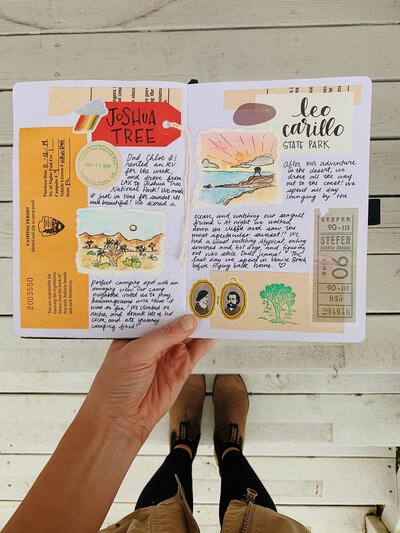 JOSHUA
TREE
Dad, Chloe & I
rented an RV
for the week,
and drove from
LAX to Joshua Tree
National Park! We made
it just in time for sunset. It
was beautiful! We scored a
perfect camping spot with an
amazing view. Our camp
neighbors invited us to play
Bananagrams with them. It
was so fun! We climbed on
rocks, and drank lots of hot
cocoa, and ate yummy
camping food!
CAMPING PERMIT
2003550
leo
carillo
STATE PARK
After our adventure
in the desert, we
drove all the way
out to the coast! We
spent all day
lounging by the
ocean, and watching our seagull
friend :) At night we walked
down the cliffs and saw the
most spectacular sunset! We
had a blast watching Atypical, eating
s'mores and hot dogs and figuring
out who stole Dad's jeans! The
last day we spent in Venice Beach
before flying back home ♡
STEFER
90-III
STEFER
06
90-III
055
294946